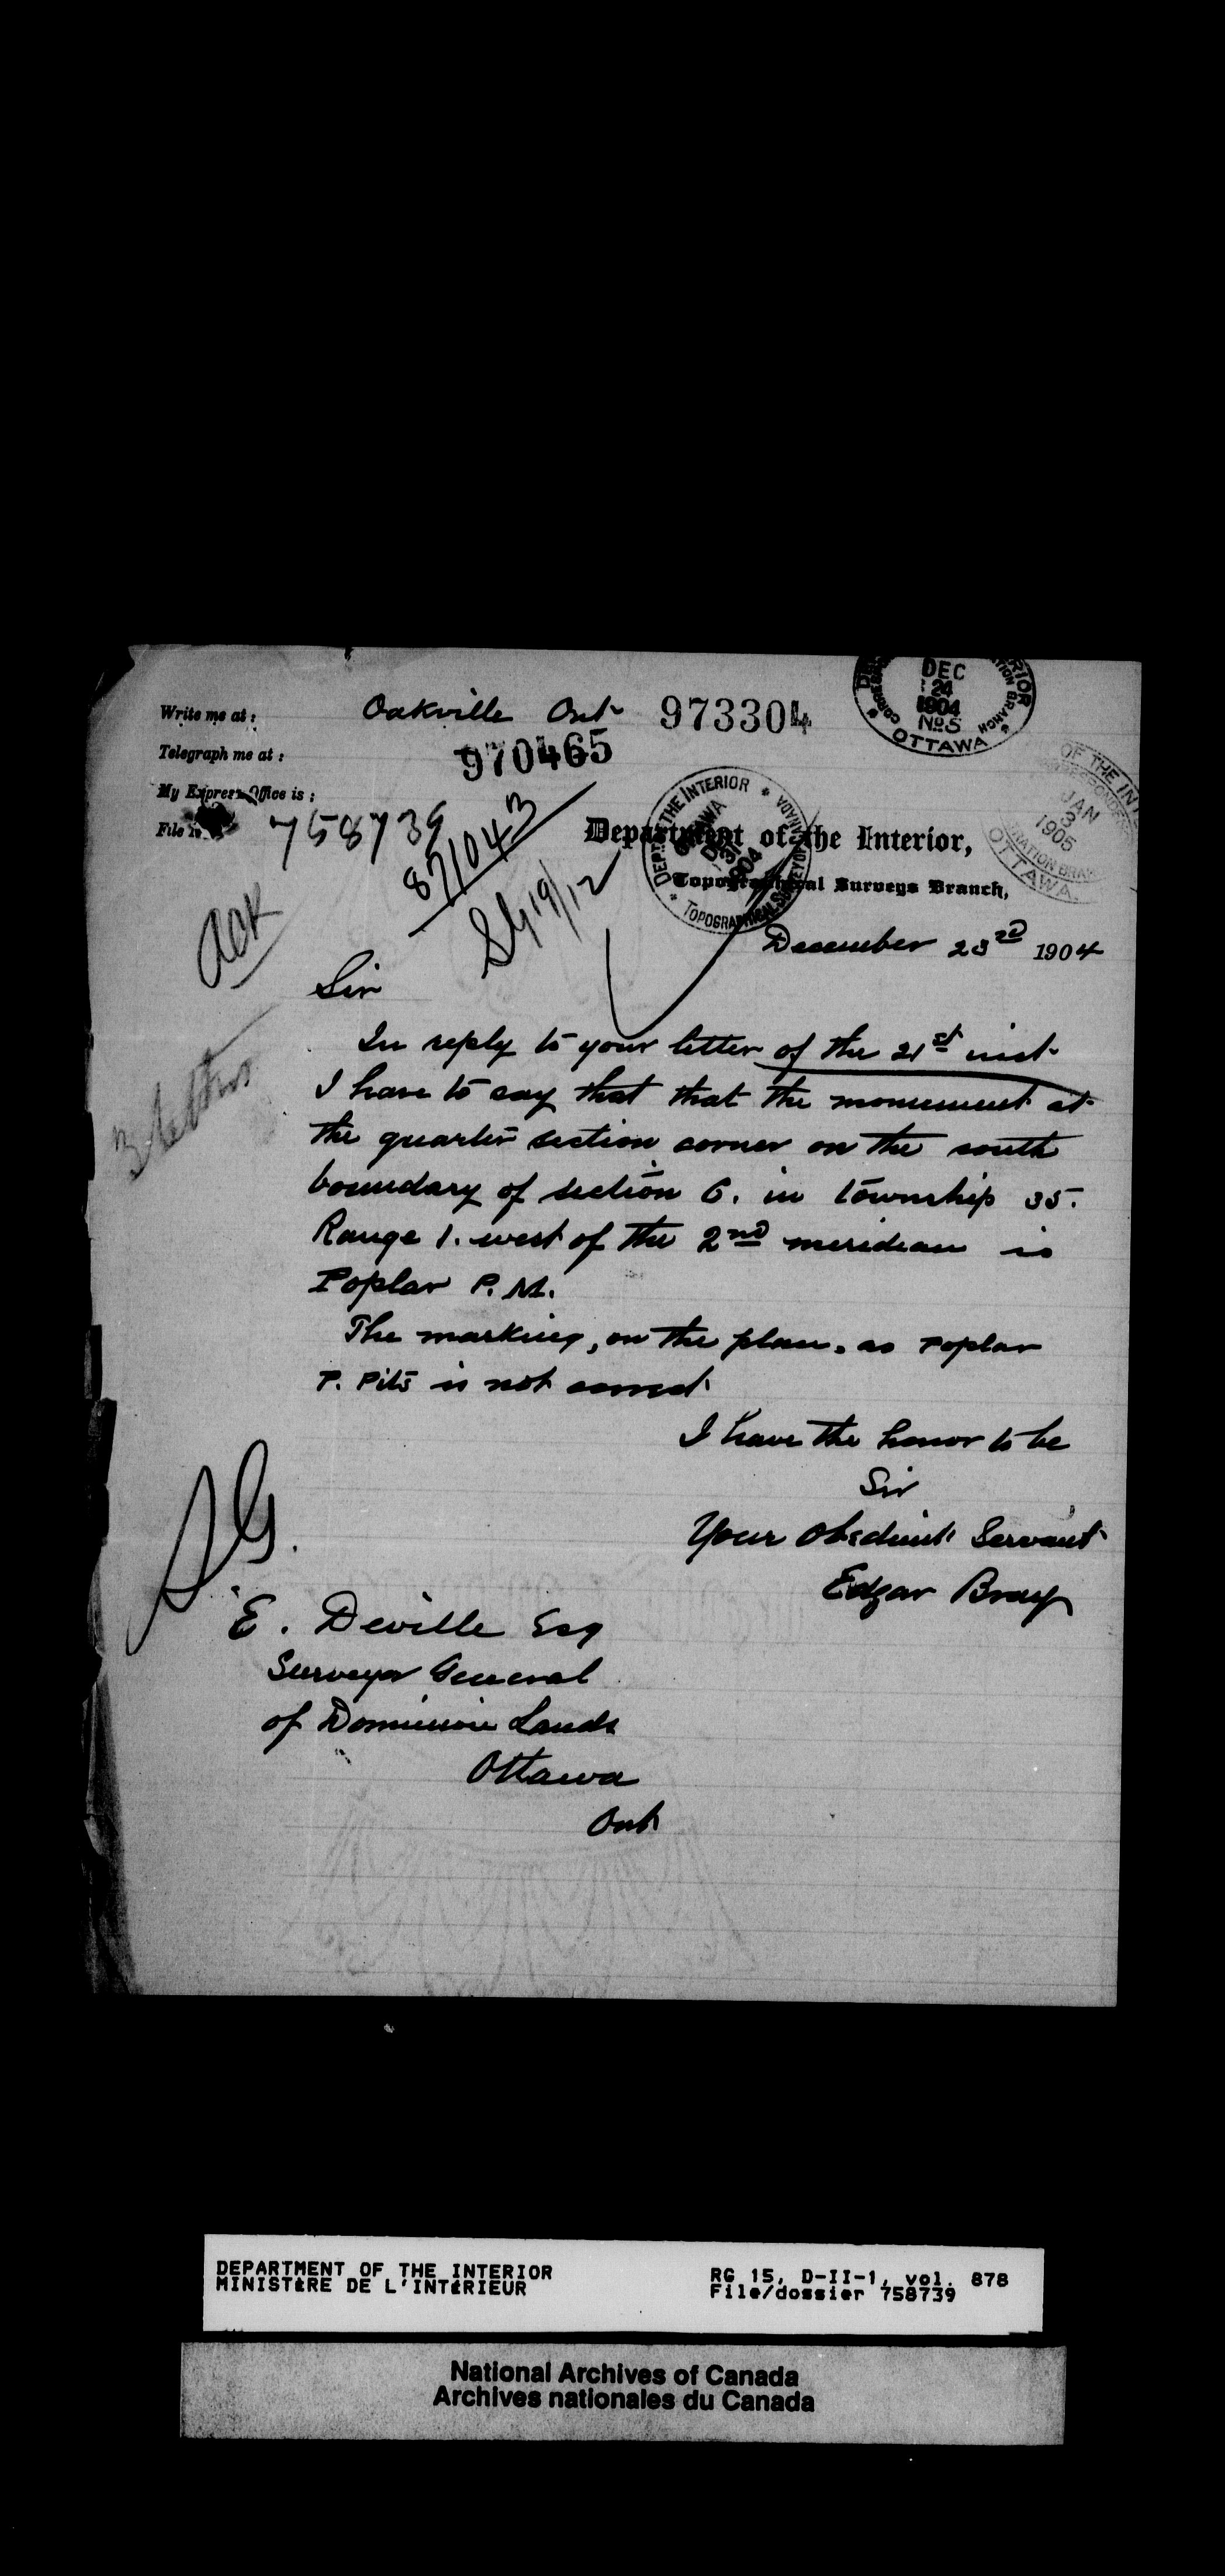 Write me at : Oakville Ont 973304
DEC
24
1904
No. 5
OTTAWA
Telegraph me at : 970465
My Express Office is :
File 758739
871043
DEPT. OF THE INTERIOR
OTTAWA
1904
TOPOGRAPHICAL SURVEY OF CANADA
JAN
3
1905
OTTAWA.
Department of the Interior,
Topographical Surveys Branch,
Ack
December 23rd 1904
3 letters
Sir
In reply to your letter of the 21st inst
I have to say that that the monument at
the quarter section corner on the south
boundary of section 6. in township 35.
Range 1. west of the 2nd meridian is
Poplar P. M.
The marking, on the plan, as Poplar
P. Pits is not correct
I have the honor to be
Sir
Your Obedient Servant
Edgar Bray
SG.
E. Deville Esq
Surveyor General
of Dominion Lands
Ottawa
Ont
DEPARTMENT OF THE INTERIOR
MINISTÈRE DE L'INTÉRIEUR
RG 15, D-II-1, vol. 878
File/dossier 758739
National Archives of Canada
Archives nationales du Canada